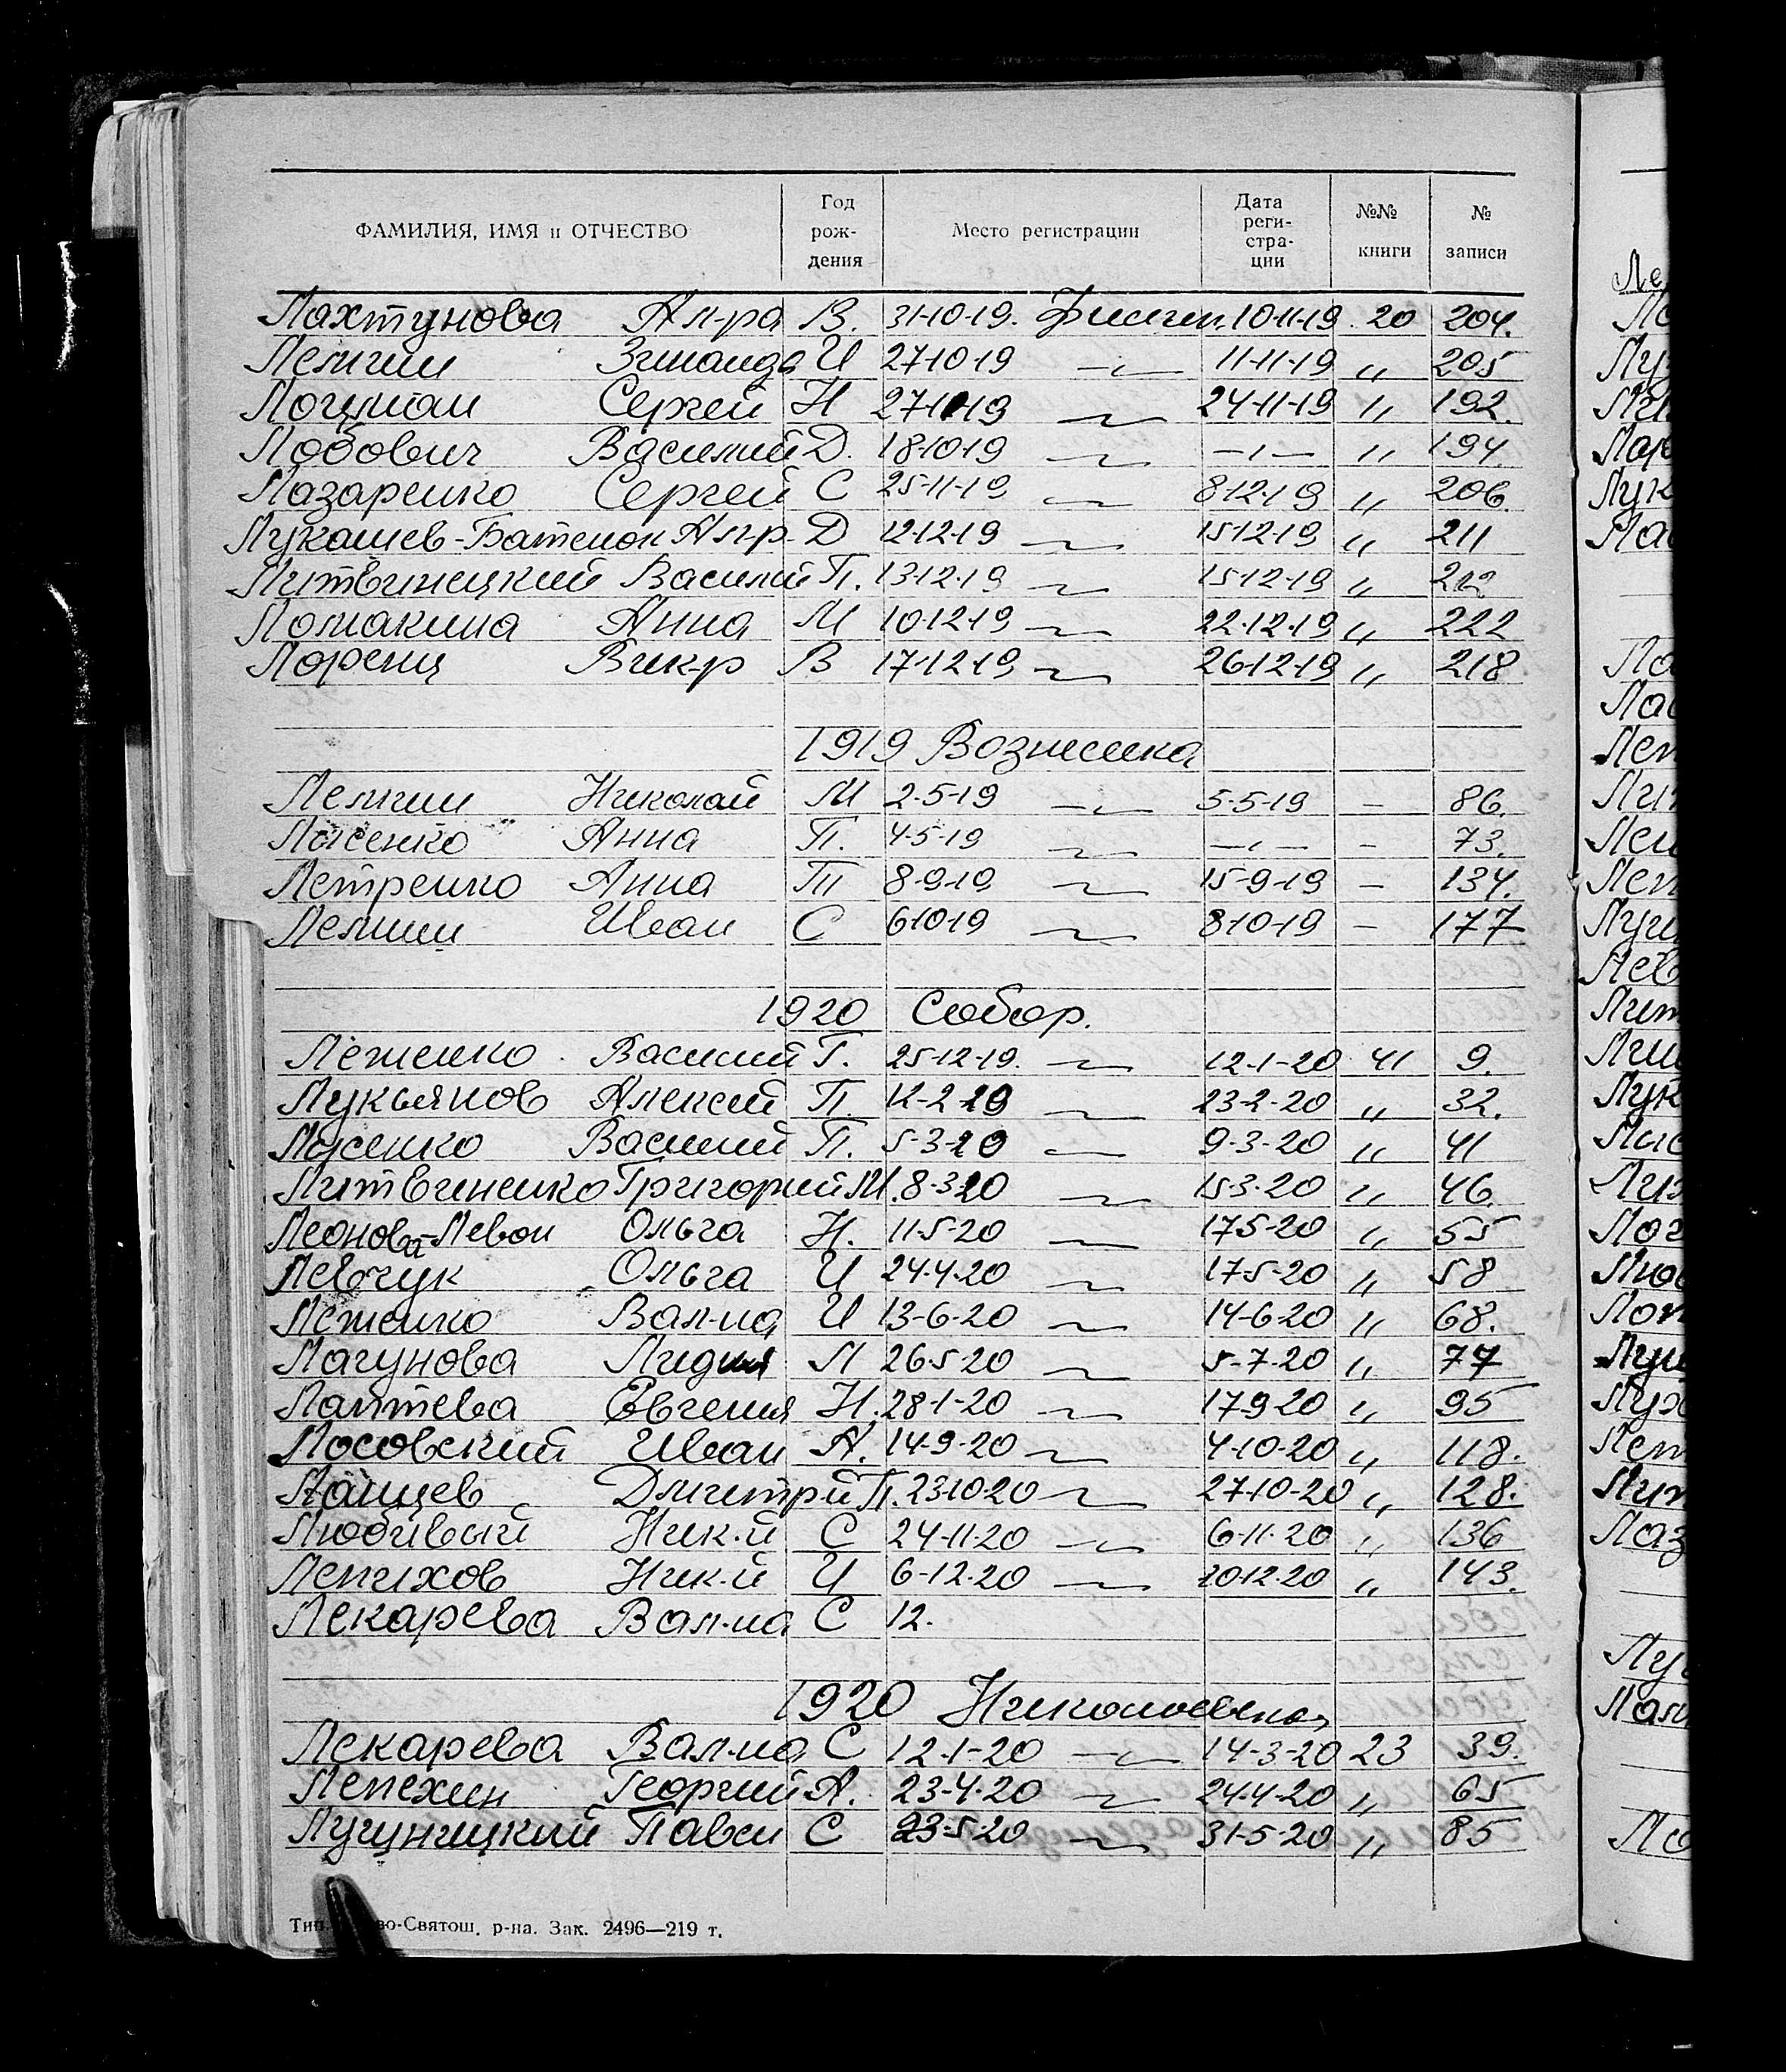 ФАМИЛИЯ, ИМЯ и ОТЧЕСТВО Год рождения Место регистрации Дата регистрации №№ книги № записи
Лахтунова Ал-ра В. 31-10-19. 10-11-19 20 204.
Лемчин Зинаида И 27-10-19 —〃— 11-11-19 〃 205
Логуман Сергей Н 27-10-19 〃 24-11-19 〃 192.
Лобович Василий Д. 18-10-19 〃 —〃— 〃 194.
Лазаренко Сергей С 25-11-19 〃 8-12-19 〃 206.
Лукашев-Батенок Ал-р. Д 12-12-19 〃 15-12-19 〃 211
Литвиницкий Василий П. 13-12-19 〃 15-12-19 〃 212
Ломакина Анна М 10-12-19 〃 22-12-19 〃 222
Лоренц Вик-р В 17-12-19 〃 26-12-19 〃 218
1919 Вознесенка
Лемчин Николай М 2-5-19 —〃— 5-5-19 — 86.
Лысенко Анна П. 4-5-19 〃 —〃— — 73.
Летренко Анна П 8-9-19 〃 15-9-19 — 134.
Лемшин Иван С 6-10-19 〃 8-10-19 — 177
1920 Собор.
Леженко Василий Г. 25-12-19. 〃 12-1-20 41 9.
Лукьянов Алексей П. 12-2-20 〃 23-2-20 〃 32.
Лысенко Василий П. 5-3-20 〃 9-3-20 〃 41
Литвиненко Григорий М. 8-3-20 〃 15-3-20 〃 46
Леонова-Левон Ольга Н. 11-5-20 〃 17-5-20 〃 55
Левчук Ольга И 24-4-20 〃 17-5-20 〃 58
Леженко Вал-на И 13-6-20 〃 14-6-20 〃 68.
Лагунова Лидия М 26-5-20 〃 5-7-20 〃 77
Лаптева Евгения Н. 28-1-20 〃 17-9-20 〃 95
Лосовский Иван А. 14-9-20 〃 4-10-20 〃 118.
Ланцев Дмитрий П. 23-10-20 〃 27-10-20 〃 128.
Любивый Ник-й С 24-11-20 〃 6-11-20 〃 136
Лепихов Ник-й И 6-12-20 〃 20-12-20 〃 143.
Лекарева Вал-на С 12.
1920 Николаевская
Лекарева Вал-на С 12-1-20 —〃— 14-3-20 23 39.
Лепехин Георгий А. 23-4-20 〃 24-4-20 〃 65
Лугуницкий Павел С 23-5-20 〃 31-5-20 〃 85
Тип. во-Святош. р-на. Зак. 2496—219 т.